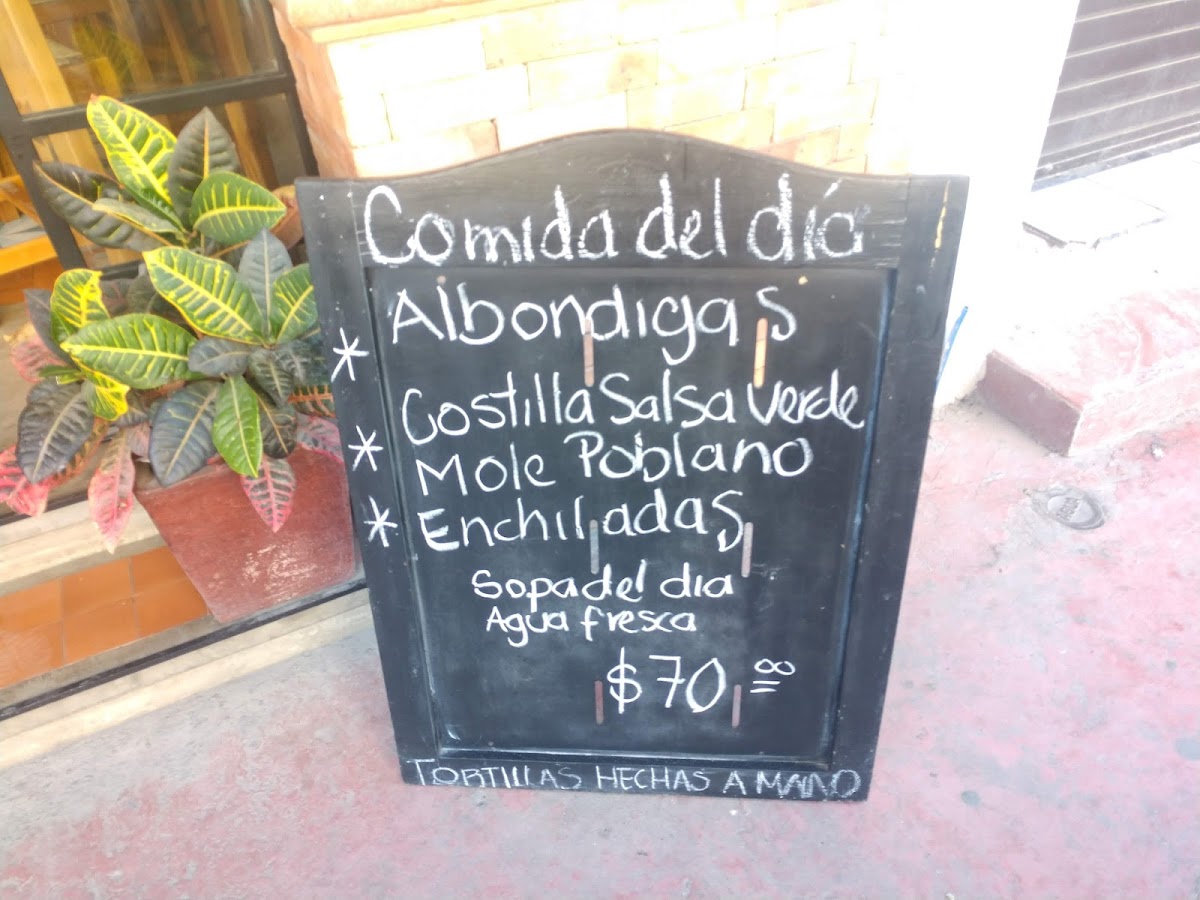 Comida del día
Albondigas
* Costilla Salsa Verde
* Mole Poblano
* Enchiladas
Sopa del dia
Agua fresca
$70.00
TORTILLAS HECHAS A MANO